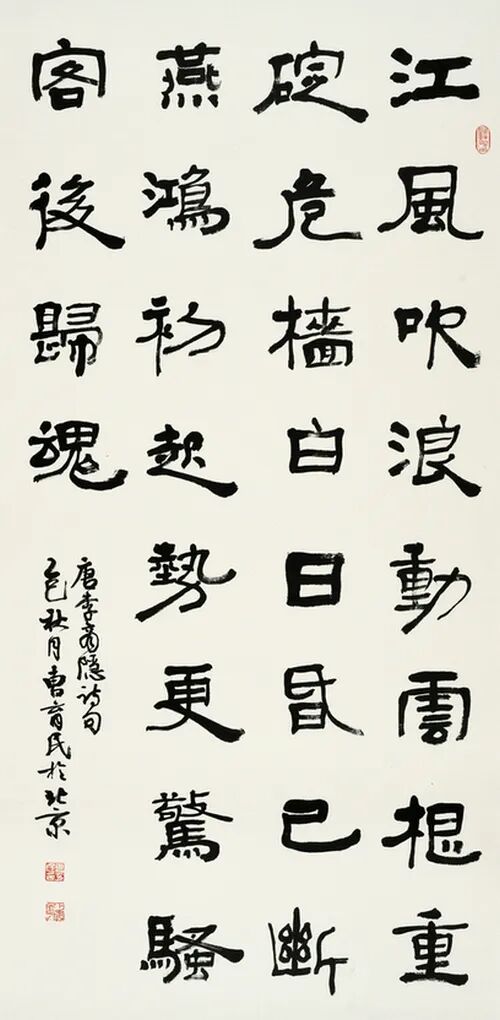 江風吹浪動雲根重
碇危檣白日昏已斷
燕鴻初起勢更驚騷
客後歸魂
唐李商隱詩句
乙巳秋月曹育民於北京